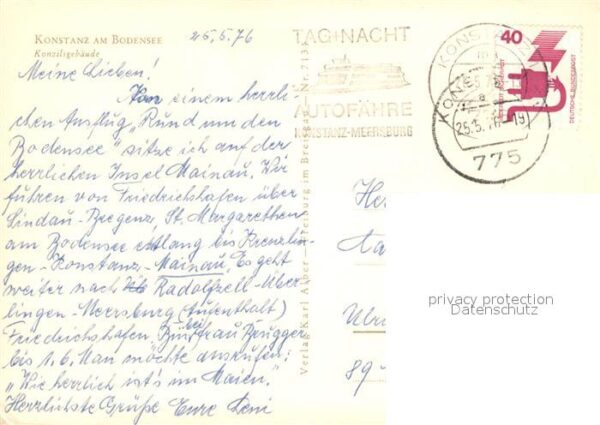 KONSTANZ AM BODENSEE
Konzilsgebäude
25.5.76
Meine Lieben!
Von einem herrli-
chen Ausflug „Rund um den
Bodensee" sitze ich auf der
herrlichen Insel Mainau. Wir
fuhren von Friedrichshafen über
Lindau-Bregenz, St. Margarethen
am Bodensee entlang bis Kreuzlin-
gen-Konstanz-Mainau. Es geht
weiter nach Radolfzell-Über-
lingen-Meersburg (Aufenthalt)
Friedrichshafen. Bin bei Frau Brugger
bis 1.6. Man möchte ausrufen:
„Wie herrlich ist's im Maien."
Herzlichste Grüße Eure Leni
Verlag Karl Alber Freiburg im Breisgau Nr.
TAG+NACHT
AUTOFÄHRE
KONSTANZ-MEERSBURG
KONSTANZ
25.5.76-19
775
40
DEUTSCHE BUNDESPOST
He
Ulr
89
privacy protection
Datenschutz